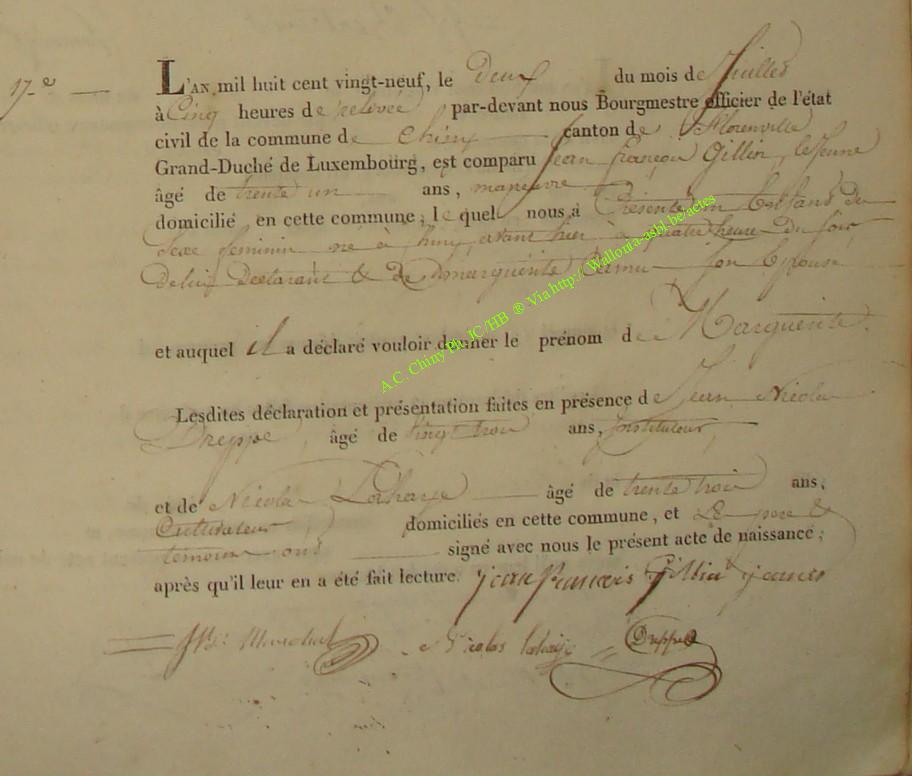 17-e
L'AN mil huit cent vingt-neuf, le Deux du mois de Juillet
à Cinq heures de relevée par-devant nous Bourgmestre officier de l'état
civil de la commune de Chiny canton de Florenville
Grand-Duché de Luxembourg, est comparu Jean françois Gillin, le Jeune
âgé de trente un ans, maneuvre
domicilié en cette commune; lequel nous a Présenté un Enfant du
Sexe feminin né à Chiny avant hier à quatre heure du Soir
De lui Déclarant & De Marguerite Camu Son Epouse
et auquel il a déclaré vouloir donner le prénom de Marguerite.
Lesdites déclaration et présentation faites en présence de Jean Nicolas
Dreppe, âgé de vingt trois ans, Instituteur,
et de Nicolas Lahaye âgé de trente trois ans,
Cultivateur domiciliés en cette commune, et Le pere &
témoins ont signé avec nous le présent acte de naissance;
après qu'il leur en a été fait lecture. jean francois Gillin jeune
Marechal Nicolas lahaye Dreppe
A.C. Chiny Ph. JC/HB ® Via http://Wallonia-asbl.be/actes